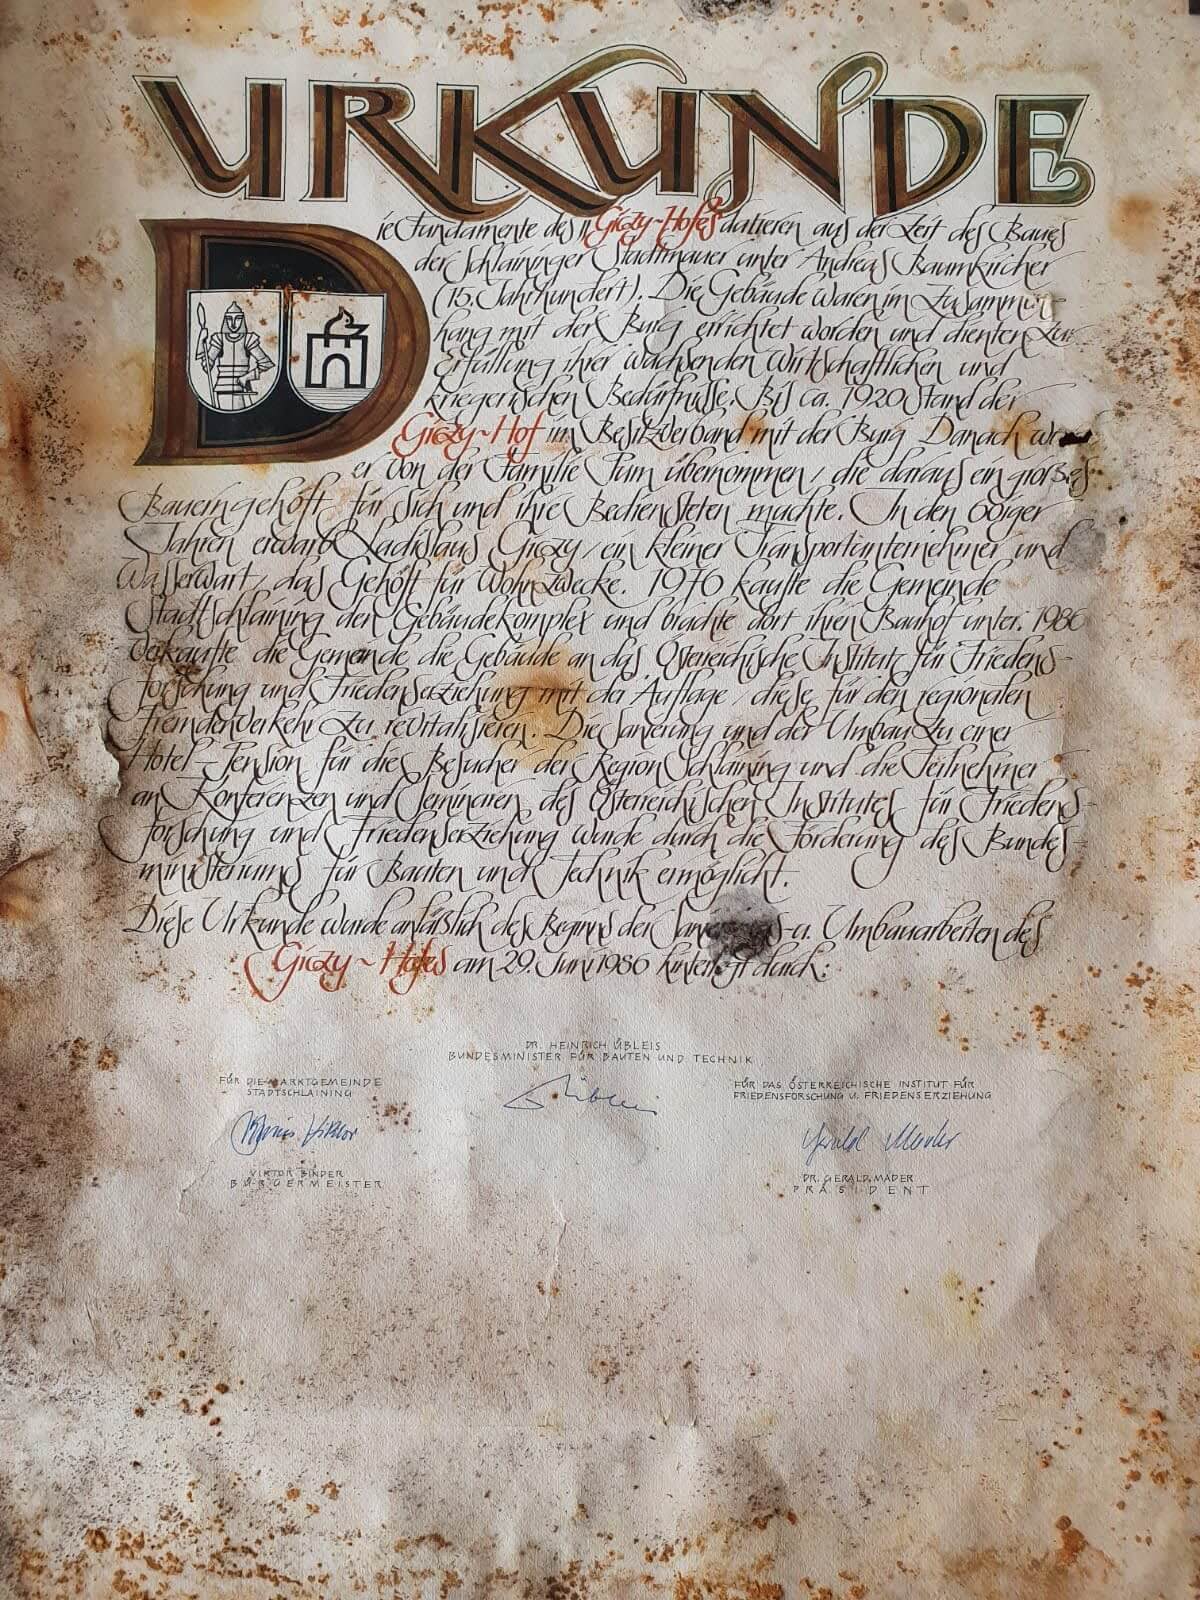 URKUNDE
Die Fundamente des "Giczy-Hofes datieren aus der Zeit des Baues
der Schlaininger Stadtmauer unter Andreas Baumkircher
(15. Jahrhundert). Die Gebäude waren im Zusammen-
hang mit der Burg errichtet worden und dienten zur
Erfüllung ihrer wachsenden wirtschaftlichen und
kriegerischen Bedürfnisse. Bis ca. 1920 stand der
Giczy-Hof im Besitzverband mit der Burg. Danach
er von der Familie Pum übernommen, die daraus ein großes
Bauerngehöft für sich und ihre Bediensteten machte. In den 60iger
Jahren erwarb Ladislaus Giczy, ein kleiner Transportunternehmer und
Wasserwart, das Gehöft für Wohnzwecke. 1976 kaufte die Gemeinde
Stadtschlaining den Gebäudekomplex und brachte dort ihren Bauhof unter. 1986
verkaufte die Gemeinde die Gebäude an das Österreichische Institut für Friedens-
forschung und Friedenserziehung mit der Auflage, diese für den regionalen
Fremdenverkehr zu revitalisieren. Die Sanierung und der Umbau zu einer
Hotel-Pension für die Besucher der Region Schlaining und die Teilnehmer
an Konferenzen und Seminaren des Österreichischen Institutes für Friedens-
forschung und Friedenserziehung wurde durch die Förderung des Bundes-
ministeriums für Bauten und Technik ermöglicht.
Diese Urkunde wurde anläßlich des Beginns der -u. Umbauarbeiten des
Giczy-Hofes am 29. Juni 1986 hinterlegt durch:
DR. HEINRICH ÜBLEIS
BUNDESMINISTER FÜR BAUTEN UND TECHNIK
FÜR DIE MARKTGEMEINDE
STADTSCHLAINING
Viktor
VIKTOR BINDER
BÜRGERMEISTER
Übleis
FÜR DAS ÖSTERREICHISCHE INSTITUT FÜR
FRIEDENSFORSCHUNG U. FRIEDENSERZIEHUNG
Gerald Mader
DR. GERALD MADER
PRÄSIDENT